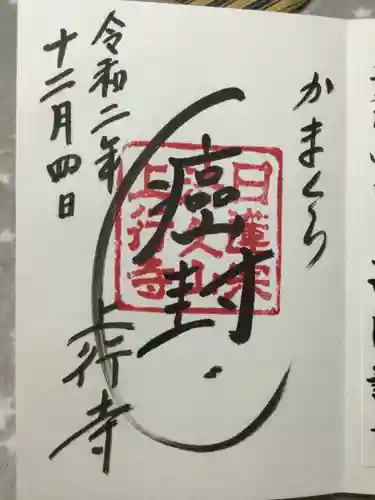 かまくら
癌封
日蓮宗
久山
上行寺
上行寺
令和二年
十二月四日